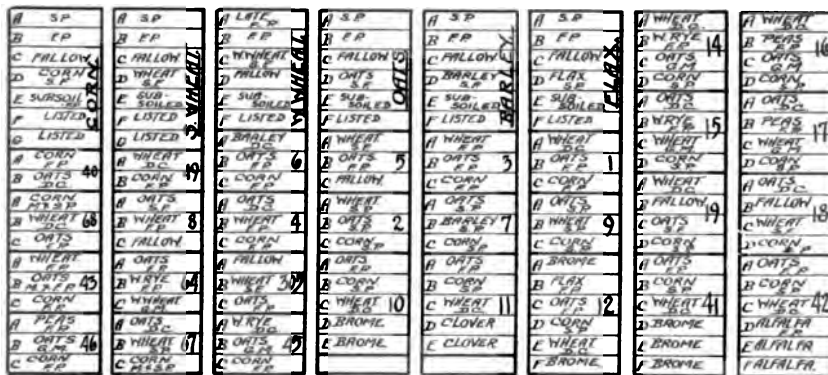 CORN
A S.P.
B F.P.
C FALLOW
D CORN S.P.
E SUBSOIL F.P.
F LISTED
G LISTED
A CORN F.P.
B OATS D.C. 40
C CORN F.P.
A CORN M.&S.P.
B WHEAT D.C. 68
C OATS
A WHEAT F.P.
B OATS M.&F.P. 43
C CORN F.P.
A PEAS F.P.
B OATS G.M. 46
C CORN F.P.
S. WHEAT
A S.P.
B F.P.
C FALLOW
D WHEAT S.P.
E SUB-SOILED
F LISTED
G LISTED
A WHEAT D.C.
B CORN F.P. 49
A OATS S.P.
B WHEAT F.P. 8
C FALLOW
A OATS F.P.
B W.RYE F.P. 64
C W.WHEAT G.M.
A OATS D.C.
B WHEAT S.P. 67
C CORN M.&S.P.
W. WHEAT
A LATE F.P.
B F.P.
C W.WHEAT S.P.
D FALLOW
E SUB-SOILED
F LISTED
A BARLEY D.C.
B OATS F.P. 6
C CORN F.P.
A OATS S.P.
B WHEAT F.P. 4
C CORN F.P.
A FALLOW
B WHEAT S.P.
C OATS F.P.
A W.RYE F.P.
B OATS G.M. 45
C CORN F.P.
OATS
A S.P.
B F.P.
C FALLOW
D OATS S.P.
E SUB-SOILED
F LISTED
A WHEAT S.P.
B OATS F.P. 5
C FALLOW
A WHEAT S.P.
B OATS S.P. 2
C CORN S.P.
A OATS F.P.
B CORN S.P.
C WHEAT D.C. 10
D BROME
E BROME
BARLEY
A S.P.
B F.P.
C FALLOW
D BARLEY S.P.
E SUB-SOILED
F LISTED
A WHEAT F.P.
B OATS S.P. 3
C CORN F.P.
A OATS S.P.
B BARLEY S.P. 7
C CORN S.P.
A OATS F.P.
B CORN S.P.
C WHEAT D.C. 11
D CLOVER
E CLOVER
FLAX
A S.P.
B F.P.
C FALLOW
D FLAX S.P.
E SUB-SOILED
F LISTED
A WHEAT D.C.
B OATS F.P. 1
C CORN F.P.
A OATS S.P.
B WHEAT S.P. 9
C CORN S.P.
A BROME
B FLAX S.P.
C OATS F.P. 12
D CORN S.P.
E WHEAT D.C.
F BROME
A WHEAT D.C.
B W.RYE F.P. 14
C OATS G.M.
D CORN S.P.
A OATS D.C.
B W.RYE F.P. 15
C WHEAT G.M.
D CORN S.P.
A WHEAT D.C.
B FALLOW 19
C OATS S.P.
D CORN S.P.
A OATS F.P.
B CORN S.P.
C WHEAT D.C. 41
D BROME
E BROME
F BROME
A WHEAT D.C.
B PEAS F.P. 16
C OATS G.M.
D CORN S.P.
A OATS D.C.
B PEAS F.P. 17
C WHEAT G.M.
D CORN S.P.
A OATS D.C.
B FALLOW 18
C WHEAT S.F.
D CORN S.P.
A OATS F.P.
B CORN S.P.
C WHEAT D.C. 42
D ALFALFA F.P.
E ALFALFA
F ALFALFA